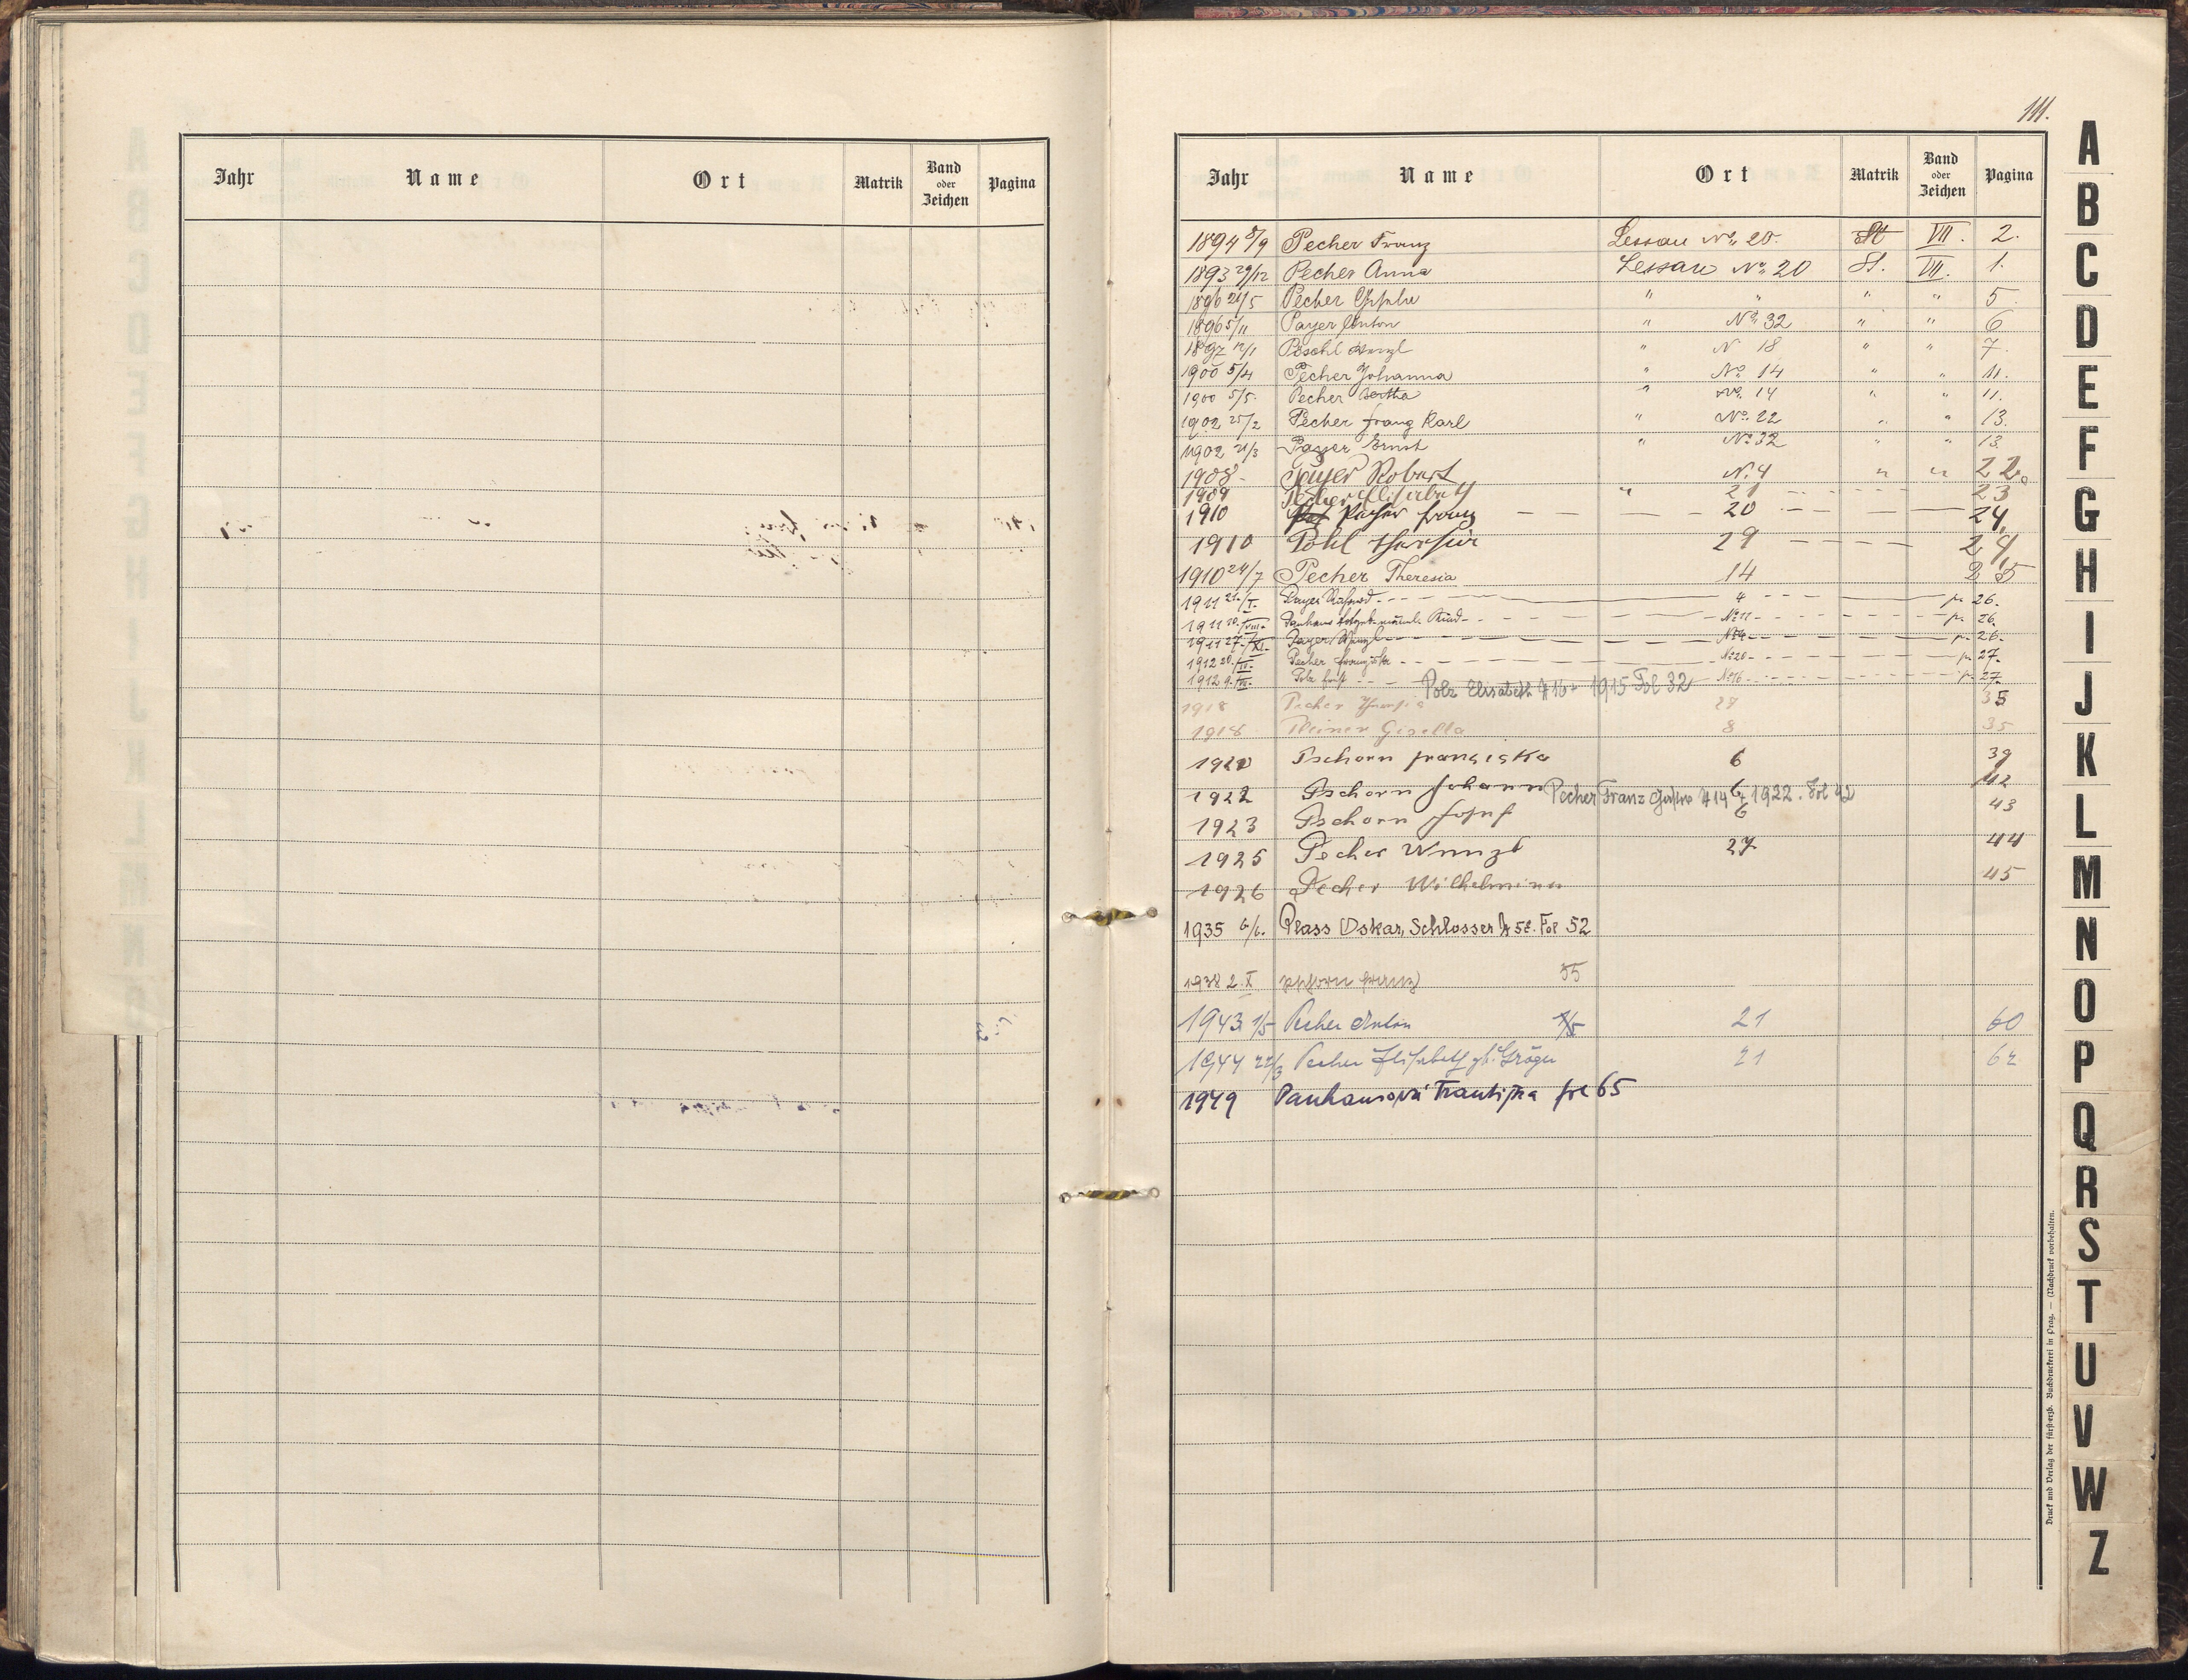 Jahr Name Ort Matrik Band oder Zeichen Pagina
111.
Jahr Name Ort Matrik Band oder Zeichen Pagina
1894 8/9 Pecher Franz Lessau No. 20. St VII. 2.
1893 29/12 Pecher Anna Lessau No. 20 St. VII. 1.
1896 21/5 Pecher " " " " 5
1896 5/11 Payer Anton " No. 32 " " 6
1897 12/1 Wenzl " N 18 " " 7
1900 5/4 Pecher Johanna " No. 14 " " 11.
1900 5/5. Pecher Bertha " No. 14 " " 11.
1902 25/2 Pecher Franz Karl " No. 22 " " 13.
1902 21/3 Payer Ernst " No. 32 " " 13
1908 - Payer Robert N. 4 " " 22.
1909 Pecher Elisabeth " 21 23
1910 Pecher Franz 20 24
1910 Pohl Theresia 29 24
1910 24/7 Pecher Theresia 14 25
1911 21./I. Payer 4 p. 26.
1911 20./VIII. Panhans Kind No. 11 p. 26.
1911 27./XI. Payer Wenzl No. 4 p. 26.
1912 20./II. Pecher Franziska No. 20 p. 27.
1912 9. Polz No. 16 p. 27.
Polz Elisabeth # 16 1915 Fol 32
1918 Pecher Theresia 35
1918 Pleiner Gisella 8 35
1920 Pschorn Franciska 6 39
1922 Pschorn Johann 6 42
Pecher Franz # 14 1922. Fol 42
1923 Pschorn Josef 6 43
1925 Pecher Wenzl 27 44
1926 Pecher Wilhelmine 45
1935 6/6. Plass Oskar, Schlosser # 58. Fol 52
1938 2. X Pschorn Franz 55
1943. 1/5 Pecher Anton 1/5 21 60
1944 22/3 Pecher Elisabeth gb. Gröger 21 62
1949 Panhansová Františka fol 65
A
B
C
D
E
F
G
H
I
J
K
L
M
N
O
P
Q
R
S
T
U
V
W
Z
Druck und Verlag der fürsterzb. Buchdruckerei in Prag. — (Nachdruck vorbehalten.